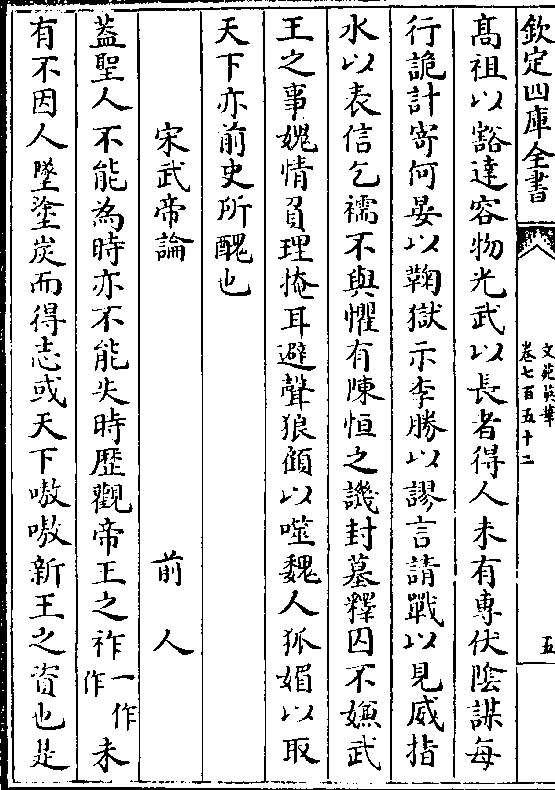 欽定四庫全書
文苑英華
卷七百五十二
五
髙祖以豁達容物光武以長者得人未有專伏陰謀每
行詭計寄何晏以鞠獄示李勝以謬言請戰以見威指
水以表信乞襦不與懼有陳恒之譏封墓釋囚不嫌武
王之事媿情負理掩耳避聲狼顧以噬魏人狐媚以取
天下亦前史所醜也
宋武帝論 前人
葢聖人不能為時亦不能失時歴觀帝王之祚一作作未
有不因人墜塗炭而得志或天下嗷嗷新王之資也是